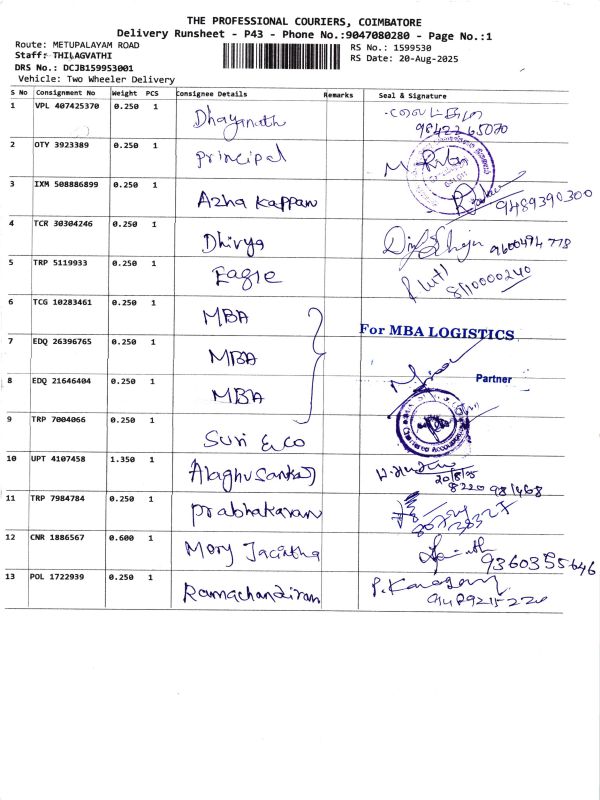 THE PROFESSIONAL COURIERS, COIMBATORE
Delivery Runsheet - P43 - Phone No.:9047080280 - Page No.:1
Route: METUPALAYAM ROAD RS No.: 1599530
Staff: THILAGVATHI RS Date: 20-Aug-2025
DRS No.: DCJB159953001
Vehicle: Two Wheeler Delivery
S No Consignment No Weight PCS Consignee Details Remarks Seal & Signature
1 VPL 407425370 0.250 1 Dhayanuth
9842265070
2 OTY 3923389 0.250 1 Principal
3 IXM 508886899 0.250 1 Azha Kappan 9489390300
4 TCR 30304246 0.250 1 Dhivya 9600494778
5 TRP 5119933 0.250 1 Eagle 8110000240
6 TCG 10283461 0.250 1 MBA
For MBA LOGISTICS
7 EDQ 26396765 0.250 1 MBA
Partner
8 EDQ 21646404 0.250 1 MBA
9 TRP 7004066 0.250 1 Suri & Co
10 UPT 4107458 1.350 1 Alaghusankar 20/8/25
8220981468
11 TRP 7984784 0.250 1 Prabhakaran
12 CNR 1886567 0.600 1 Mory Jacintha 9360355646
13 POL 1722939 0.250 1 Ramachandiran